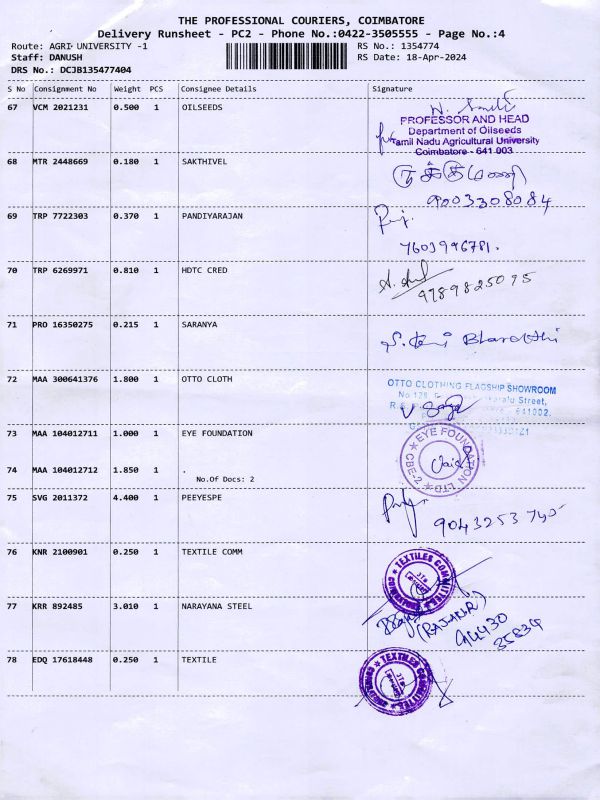 THE PROFESSIONAL COURIERS, COIMBATORE
Delivery Runsheet - PC2 - Phone No.:0422-3505555 - Page No.:4
Route: AGRI UNIVERSITY -1
RS No.: 1354774
Staff: DANUSH
RS Date: 18-Apr-2024
DRS No.: DCJB135477404
S No Consignment No Weight PCS Consignee Details Signature
67 VCM 2021231 0.500 1 OILSEEDS
PROFESSOR AND HEAD
Department of Oilseeds
Tamil Nadu Agricultural University
Coimbatore - 641 003
68 MTR 2448669 0.180 1 SAKTHIVEL
9003308084
69 TRP 7722303 0.370 1 PANDIYARAJAN
7603996781.
70 TRP 6269971 0.810 1 HDTC CRED
9789825095
71 PRO 16350275 0.215 1 SARANYA
Bharathi
72 MAA 300641376 1.800 1 OTTO CLOTH
OTTO CLOTHING FLAGSHIP SHOWROOM
Street,
641002.
73 MAA 104012711 1.000 1 EYE FOUNDATION
EYE FOUNDATION LTD
CBE-2
74 MAA 104012712 1.850 1 .
No.Of Docs: 2
75 SVG 2011372 4.400 1 PEEYESPE
9043253740
76 KNR 2100901 0.250 1 TEXTILE COMM
TEXTILES COMMITTEE
77 KRR 892485 3.010 1 NARAYANA STEEL
94430
35834
78 EDQ 17618448 0.250 1 TEXTILE
TEXTILES COMMITTEE